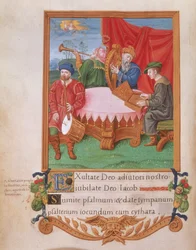 Exultate Deo adiutori nostro
iubilate Deo Iacob
Sumite psalmum & date tympanum
psalmum iocundum cum cythara